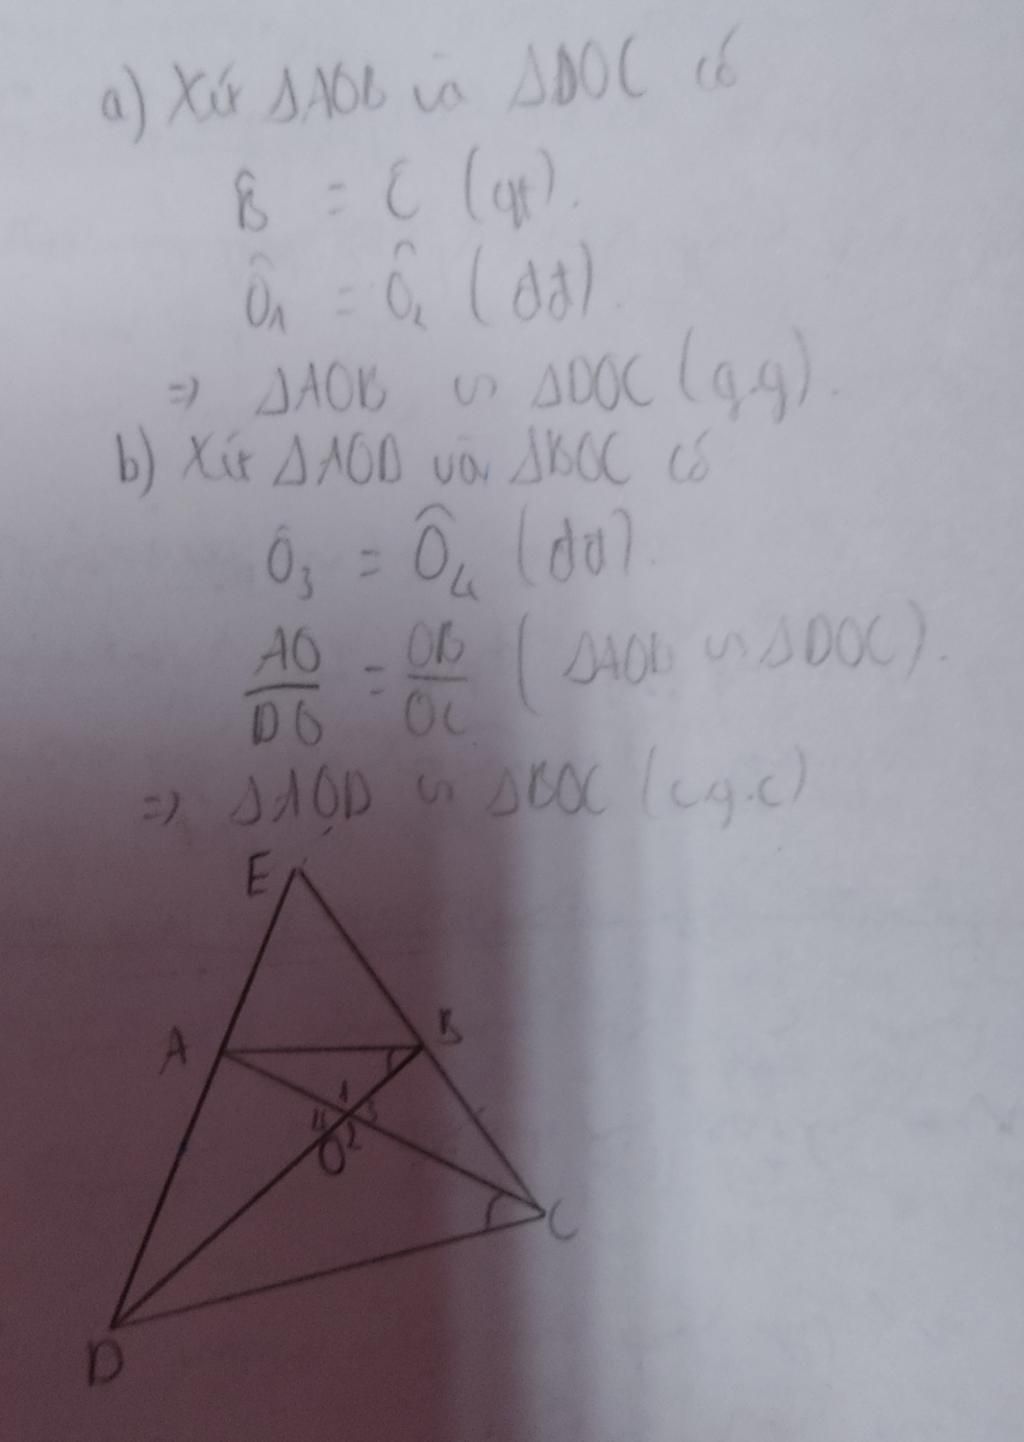 a) Xét ΔAOB và ΔDOC có
B̂ = Ĉ (gt).
Ô₁ = Ô₂ (đđ).
=> ΔAOB ∽ ΔDOC (g.g).
b) Xét ΔAOD và ΔBOC có
Ô₃ = Ô₄ (đđ).
AO/DO = OB/OC (ΔAOB ∽ ΔDOC).
=> ΔAOD ∽ ΔBOC (c.g.c)
E
A B
1
4 3
O 2
C
D